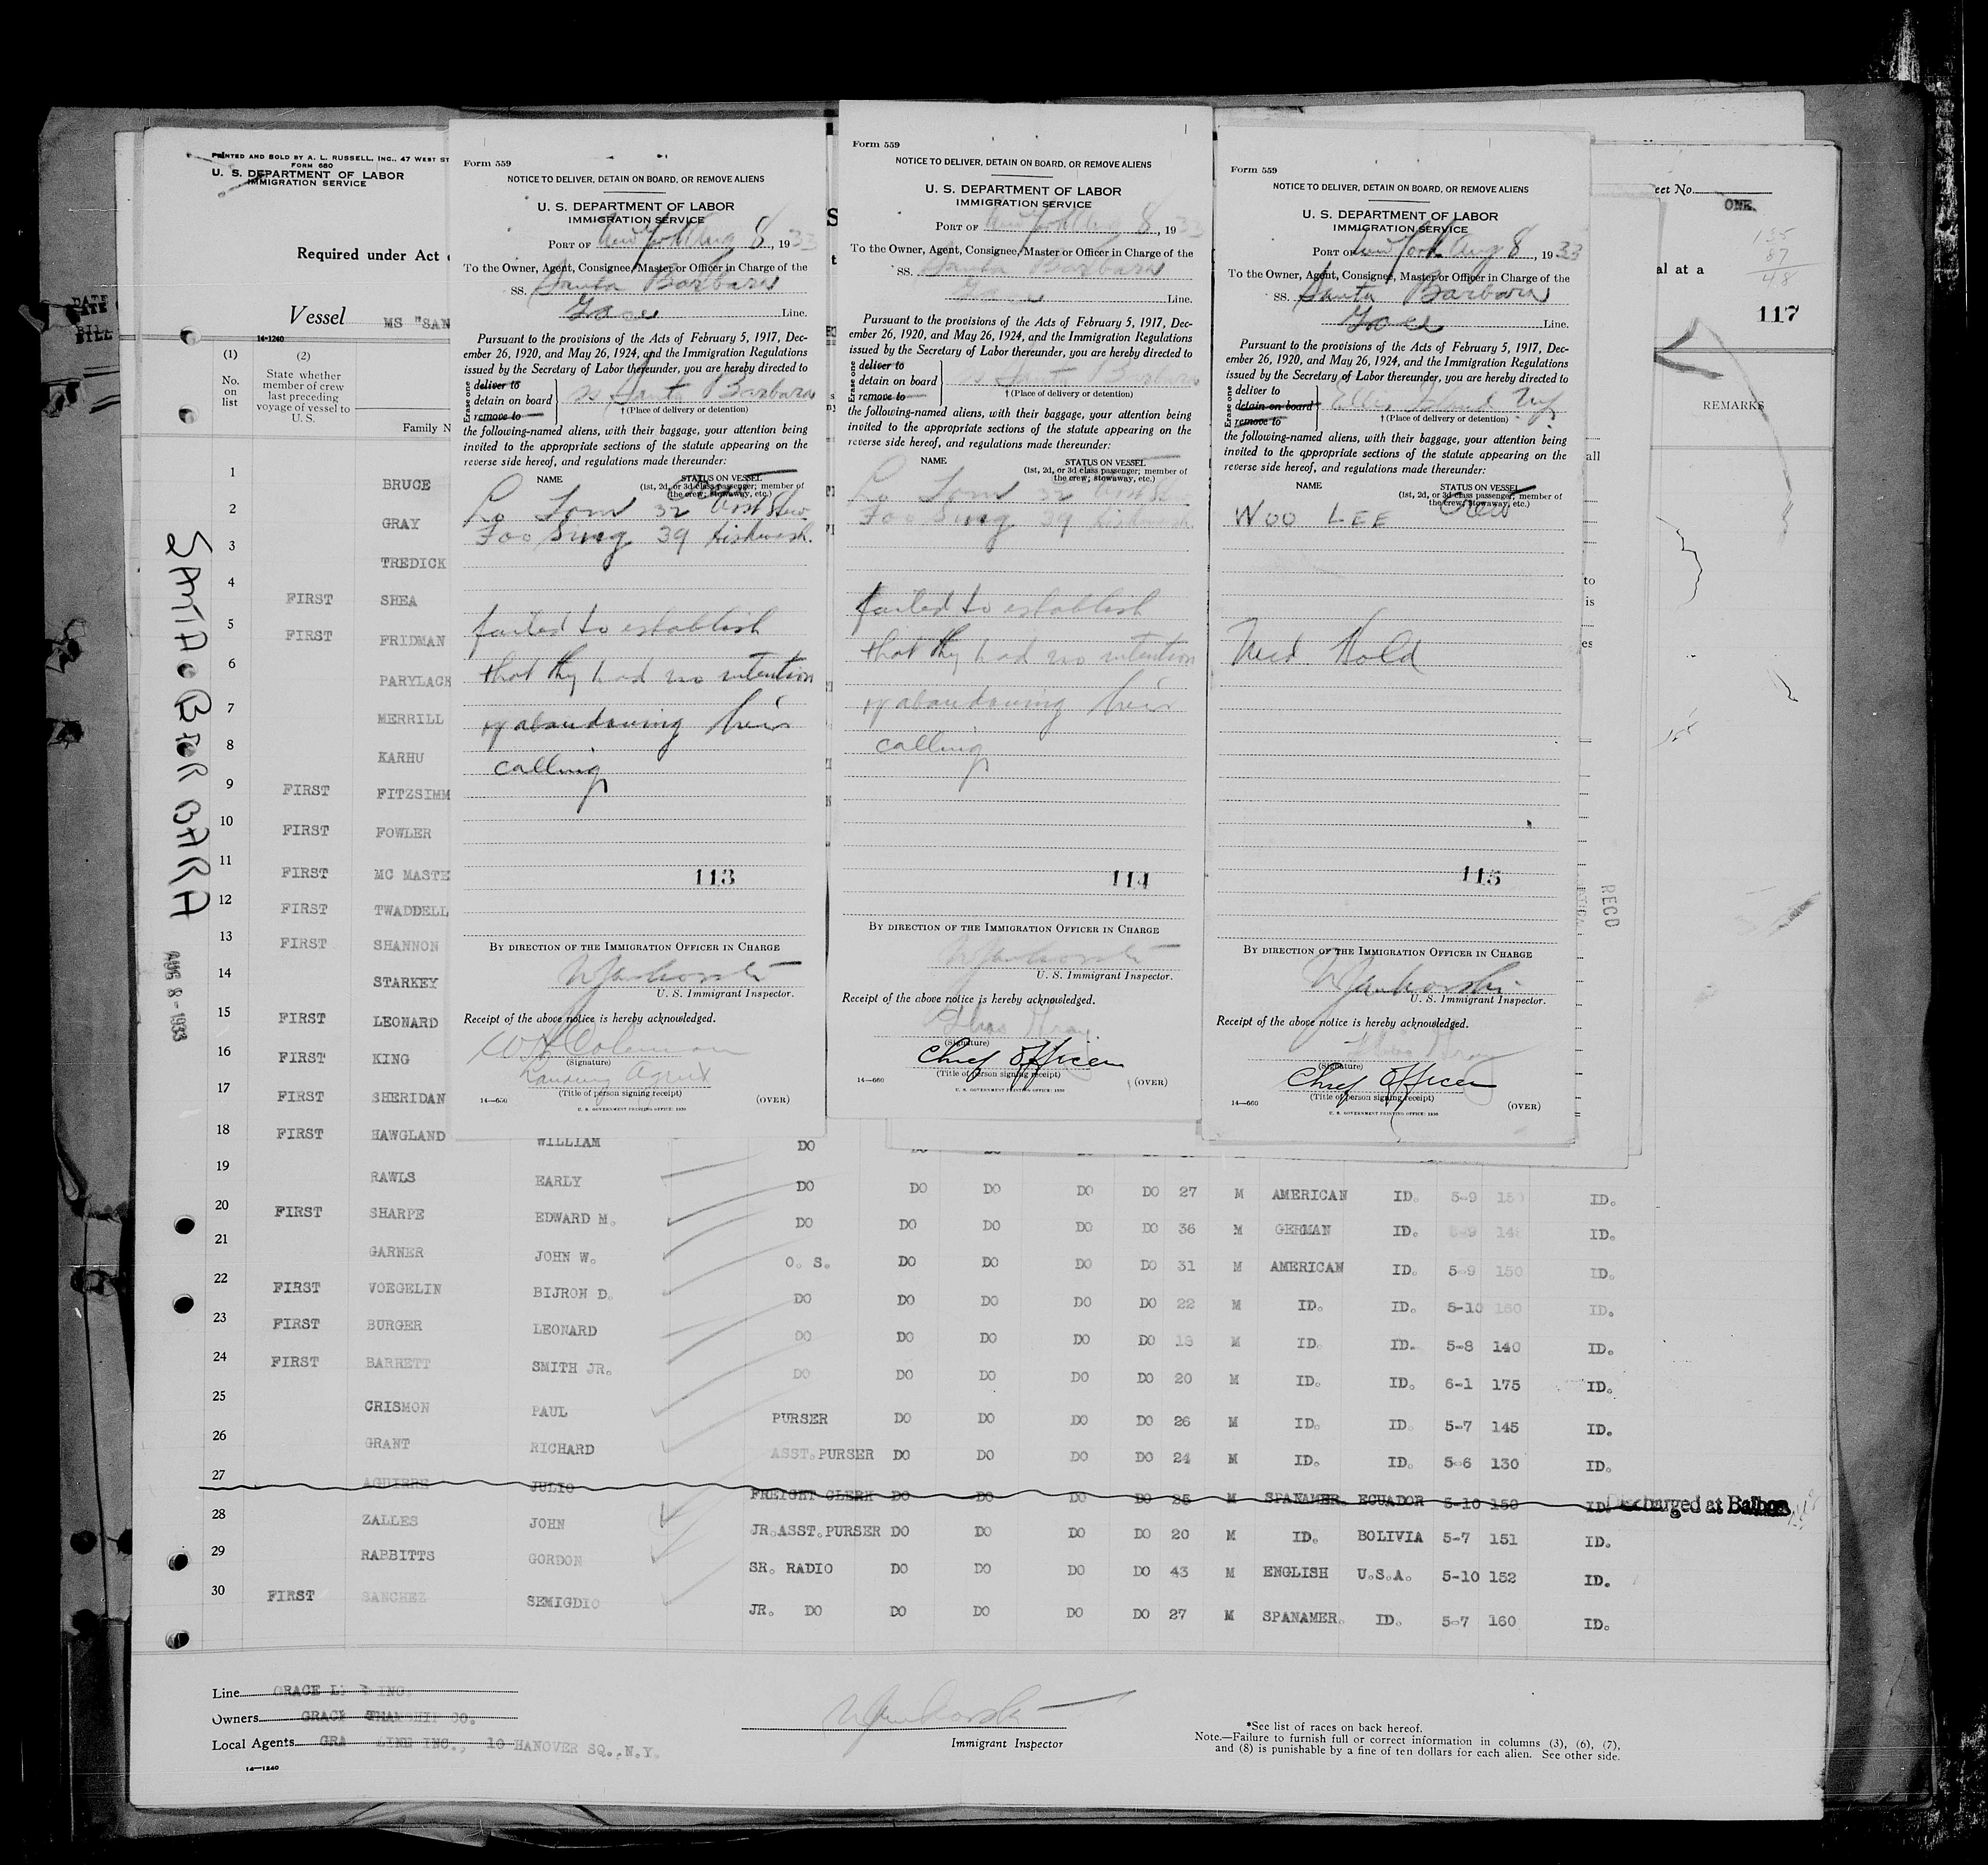 PRINTED AND SOLD BY A. L. RUSSELL, INC., 47 WEST ST
FORM 680
U. S. DEPARTMENT OF LABOR
IMMIGRATION SERVICE
Required under Act
Vessel MS "SAN
14-1240
(1) (2)
No. on list
State whether member of crew last preceding voyage of vessel to U. S.
Family N
SANTA BARBARA
AUG 8-1933
1 BRUCE
2 GRAY
3 TREDICK
4 FIRST SHEA
5 FIRST FRIDMAN
6 PARYLACK
7 MERRILL
8 KARHU
9 FIRST FITZSIMM
10 FIRST FOWLER
11 FIRST MC MASTE
12 FIRST TWADDELL
13 FIRST SHANNON
14 STARKEY
15 FIRST LEONARD
16 FIRST KING
17 FIRST SHERIDAN
18 FIRST HAWGLAND WILLIAM DO
19 RAWLS EARLY DO DO DO DO DO 27 M AMERICAN ID. 5-9 150 ID.
20 FIRST SHARPE EDWARD M. DO DO DO DO DO 36 M GERMAN ID. 5-9 ID.
21 GARNER JOHN W. O. S. DO DO DO DO 31 M AMERICAN ID. 5-9 150 ID.
22 FIRST VOEGELIN BIJRON D. DO DO DO DO DO 22 M ID. ID. 5-10 160 ID.
23 FIRST BURGER LEONARD DO DO DO DO DO 18 M ID. ID. 5-8 140 ID.
24 FIRST BARRETT SMITH JR. DO DO DO DO DO 20 M ID. ID. 6-1 175 ID.
25 CRISMON PAUL PURSER DO DO DO DO 26 M ID. ID. 5-7 145 ID.
26 GRANT RICHARD ASST. PURSER DO DO DO DO 24 M ID. ID. 5-6 130 ID.
27 AGUIRRE JULIO FREIGHT CLERK DO DO DO DO 25 M SPANAMER. ECUADOR 5-10 150 ID. Discharged at Balboa
28 ZALLES JOHN JR. ASST. PURSER DO DO DO DO 20 M ID. BOLIVIA 5-7 151 ID.
29 RABBITTS GORDON SR. RADIO DO DO DO DO 43 M ENGLISH U.S.A. 5-10 152 ID.
30 FIRST SANCHEZ SEMIGDIO JR. DO DO DO DO DO 27 M SPANAMER. ID. 5-7 160 ID.
Line GRACE L INC.
Owners
Local Agents LINE INC., 10 HANOVER SQ., N.Y.
14—1240
Immigrant Inspector
*See list of races on back hereof.
Note.—Failure to furnish full or correct information in columns (3), (6), (7),
and (8) is punishable by a fine of ten dollars for each alien. See other side.
Form 559
NOTICE TO DELIVER, DETAIN ON BOARD, OR REMOVE ALIENS
U. S. DEPARTMENT OF LABOR
IMMIGRATION SERVICE
PORT OF New York Aug 8, 1933
To the Owner, Agent, Consignee, Master or Officer in Charge of the
SS. Santa Barbara
Grace Line.
Pursuant to the provisions of the Acts of February 5, 1917, Dec-
ember 26, 1920, and May 26, 1924, and the Immigration Regulations
issued by the Secretary of Labor thereunder, you are hereby directed to
Erase one
deliver to
detain on board
remove to
ss Santa Barbara
† (Place of delivery or detention)
the following-named aliens, with their baggage, your attention being
invited to the appropriate sections of the statute appearing on the
reverse side hereof, and regulations made thereunder:
NAME STATUS ON VESSEL
(1st, 2d, or 3d class passenger; member of
the crew; stowaway, etc.)
Lo Tom 32 Asst Stew
Foo Sing 39 dishwash.
failed to establish
that they had no intention
of abandoning their
calling
113
BY DIRECTION OF THE IMMIGRATION OFFICER IN CHARGE
U. S. Immigrant Inspector.
Receipt of the above notice is hereby acknowledged.
W H Coleman
(Signature)
Landing Agent
(Title of person signing receipt)
U. S. GOVERNMENT PRINTING OFFICE: 1930
(OVER)
Form 559
NOTICE TO DELIVER, DETAIN ON BOARD, OR REMOVE ALIENS
U. S. DEPARTMENT OF LABOR
IMMIGRATION SERVICE
PORT OF New York Aug 8, 1933
To the Owner, Agent, Consignee, Master or Officer in Charge of the
SS. Santa Barbara
Grace Line.
Pursuant to the provisions of the Acts of February 5, 1917, Dec-
ember 26, 1920, and May 26, 1924, and the Immigration Regulations
issued by the Secretary of Labor thereunder, you are hereby directed to
Erase one
deliver to
detain on board
remove to
ss Santa Barbara
† (Place of delivery or detention)
the following-named aliens, with their baggage, your attention being
invited to the appropriate sections of the statute appearing on the
reverse side hereof, and regulations made thereunder:
NAME STATUS ON VESSEL
(1st, 2d, or 3d class passenger; member of
the crew; stowaway, etc.)
Lo Tom 32 Asst Stew
Foo Sing 39 dishwash
failed to establish
that they had no intention
of abandoning their
calling
114
BY DIRECTION OF THE IMMIGRATION OFFICER IN CHARGE
U. S. Immigrant Inspector.
Receipt of the above notice is hereby acknowledged.
Gray
(Signature)
Chief Officer
(Title of person signing receipt)
14—660
U. S. GOVERNMENT PRINTING OFFICE: 1930
(OVER)
Form 559
NOTICE TO DELIVER, DETAIN ON BOARD, OR REMOVE ALIENS
U. S. DEPARTMENT OF LABOR
IMMIGRATION SERVICE
PORT OF New York Aug 8, 1933
To the Owner, Agent, Consignee, Master or Officer in Charge of the
SS. Santa Barbara
Grace Line.
Pursuant to the provisions of the Acts of February 5, 1917, Dec-
ember 26, 1920, and May 26, 1924, and the Immigration Regulations
issued by the Secretary of Labor thereunder, you are hereby directed to
Erase one
deliver to
detain on board
remove to
Ellis Island NY
† (Place of delivery or detention)
the following-named aliens, with their baggage, your attention being
invited to the appropriate sections of the statute appearing on the
reverse side hereof, and regulations made thereunder:
NAME STATUS ON VESSEL
(1st, 2d, or 3d class passenger; member of
the crew; stowaway, etc.)
WOO LEE Crew
Med Hold
115
BY DIRECTION OF THE IMMIGRATION OFFICER IN CHARGE
U. S. Immigrant Inspector.
Receipt of the above notice is hereby acknowledged.
Gray
(Signature)
Chief Officer
(Title of person signing receipt)
14—660
U. S. GOVERNMENT PRINTING OFFICE: 1930
(OVER)
eet No.
ONE.
135
87
48
al at a
117
REMARKS
all
to
is
es
RECD